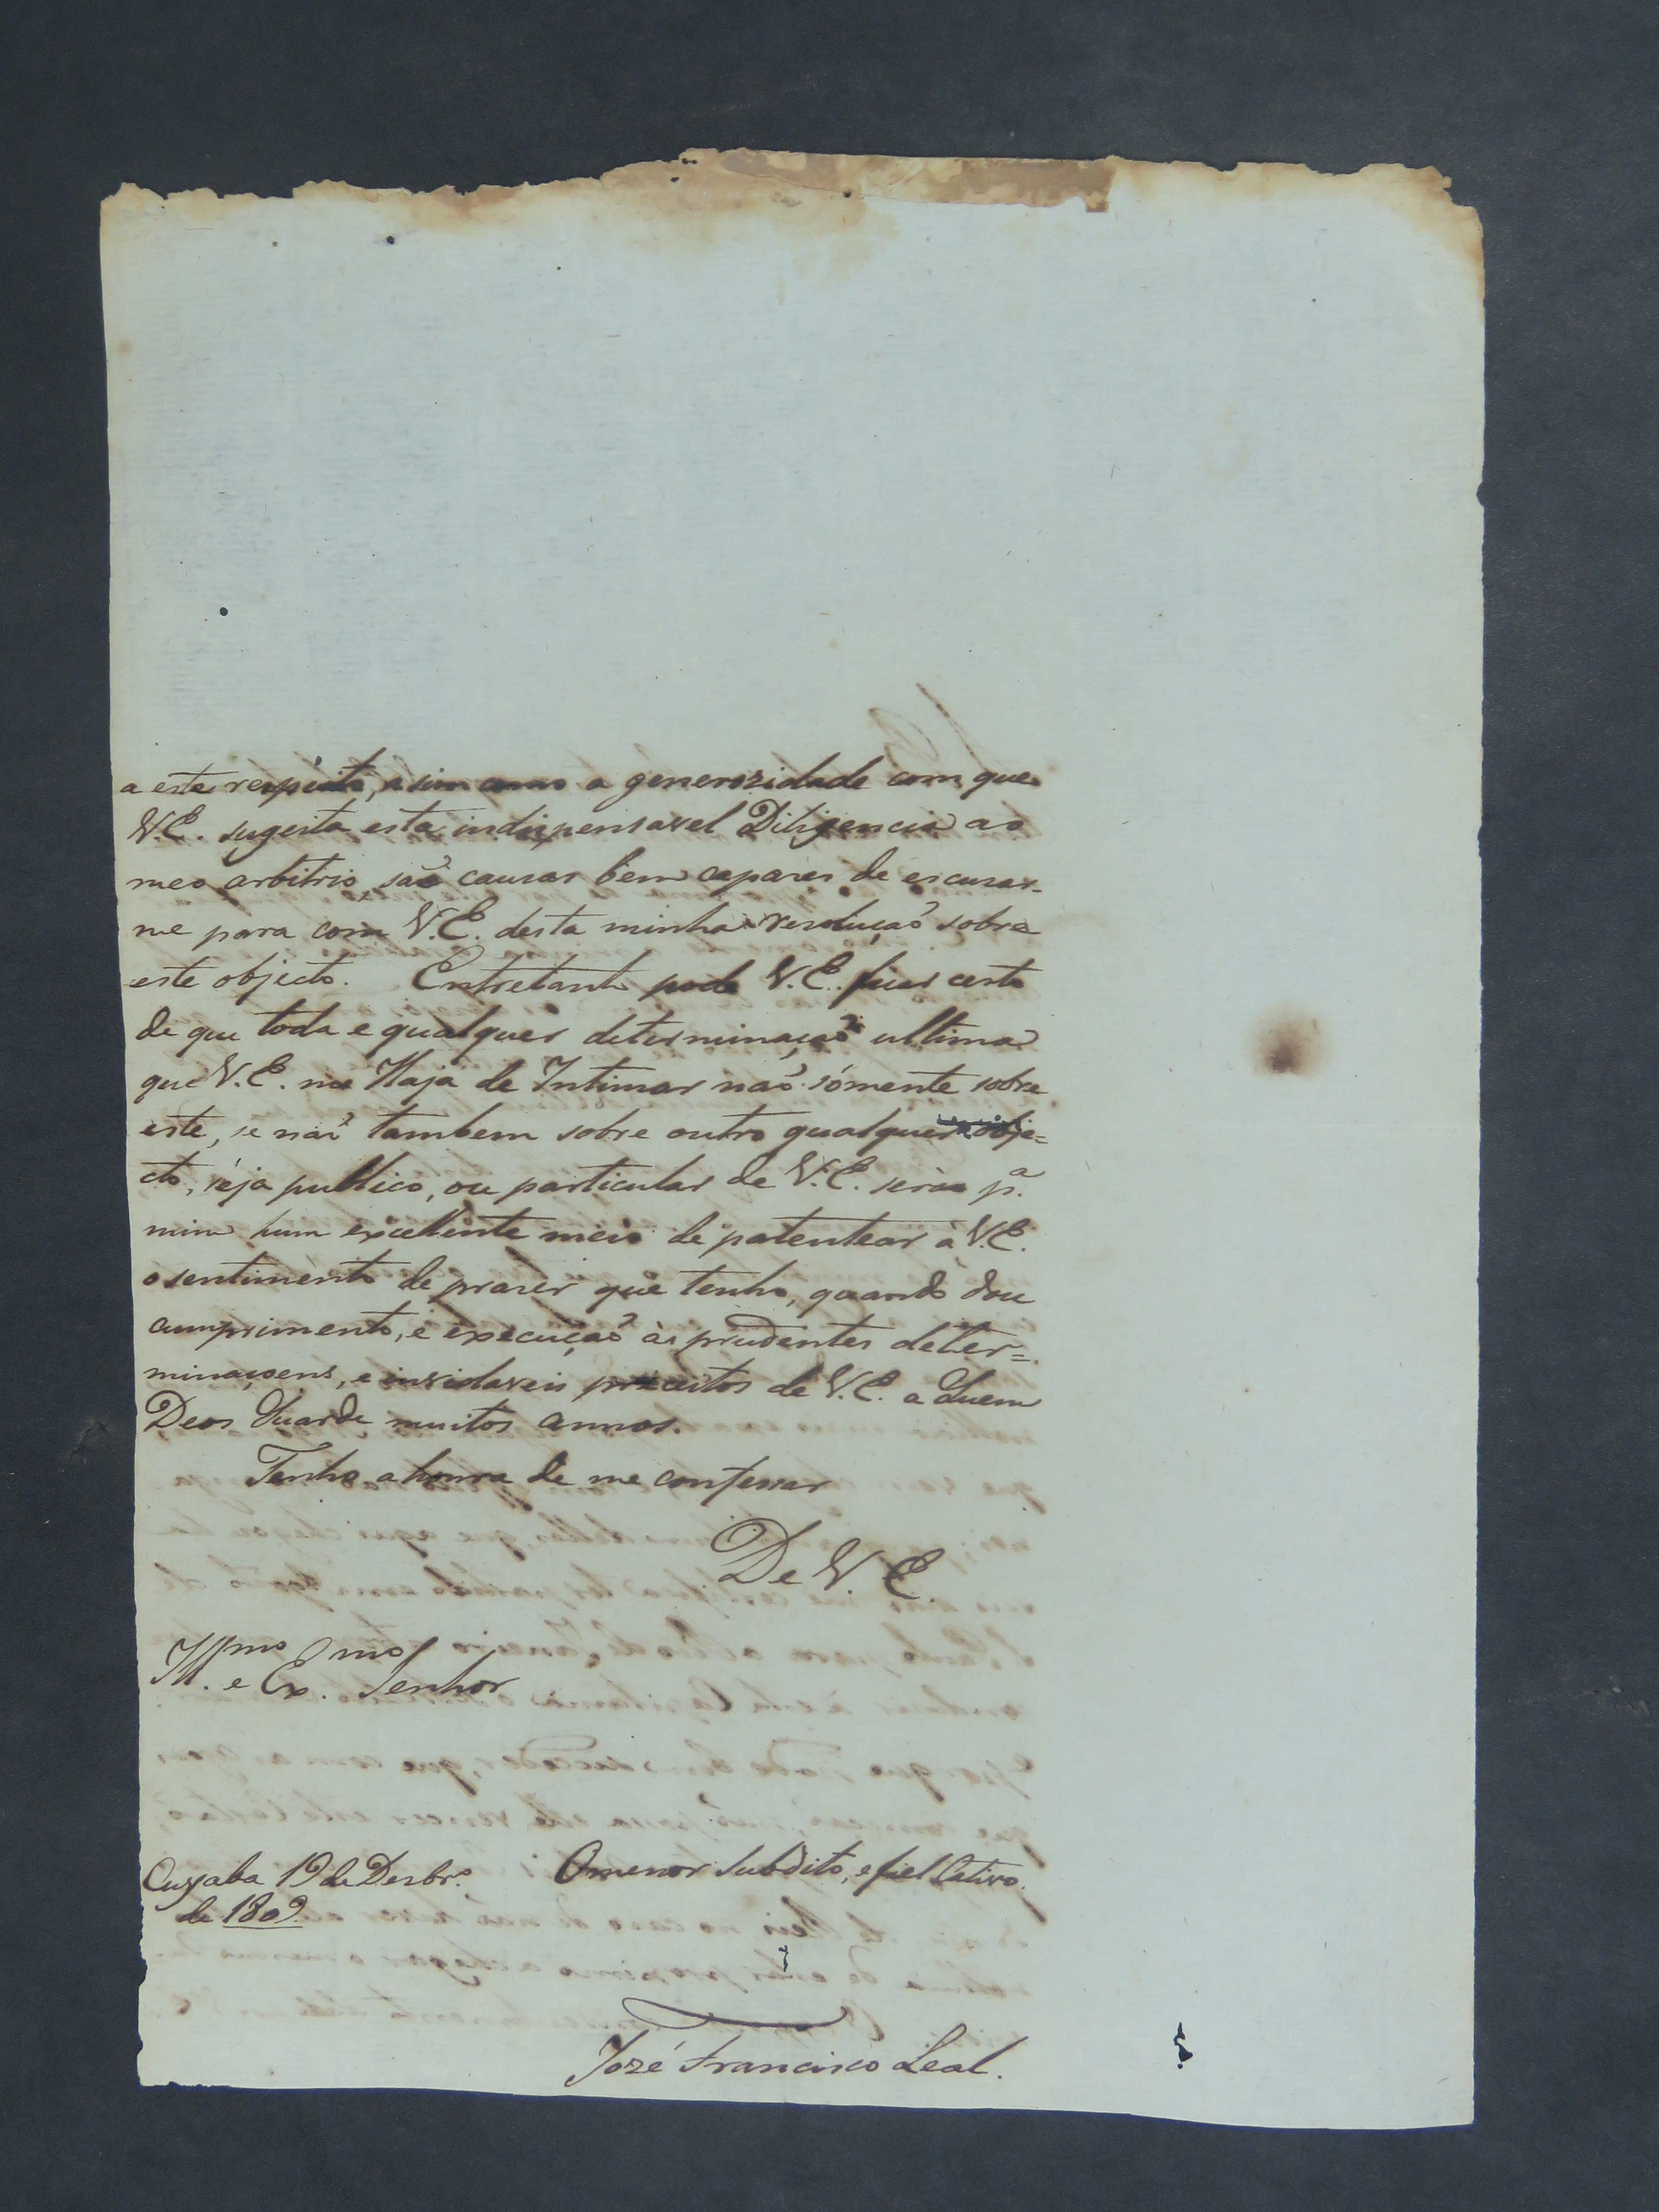 a este respeito, asim como a generozidade com que
V.E. sugeita esta indispensavel Diligencia ao
meo arbitrio, saõ causas bem capazes de escusar-
me para com V.E. desta minha resoluçaõ sobre
este objecto. Entretanto pode V.E. ficar certo
de que toda e qualquer determinaçaõ ultima
que V.E. me Haja de Intimar naõ sómente sobre
este, se naõ tambem sobre outro qualquer obje=
cto, seja publico, ou particular de V.E. serão pª.
mim hum excellente meio de patentear à V.E.
o sentimento de prazer que tenho, quando dou
cumprimento, e execuçaõ às prudentes deter=
minaçoens, e inviolaveis preceitos de V.E. a Quem
Deos Guarde muitos annos.
Tenho a honra de me confessar
De V. E.
Illmo. e Exmo. Senhor
Cuyaba 19 de Dezbrº. O menor Subdito, e fiel Cativo.
de 1809.
Jozé Francisco Leal.